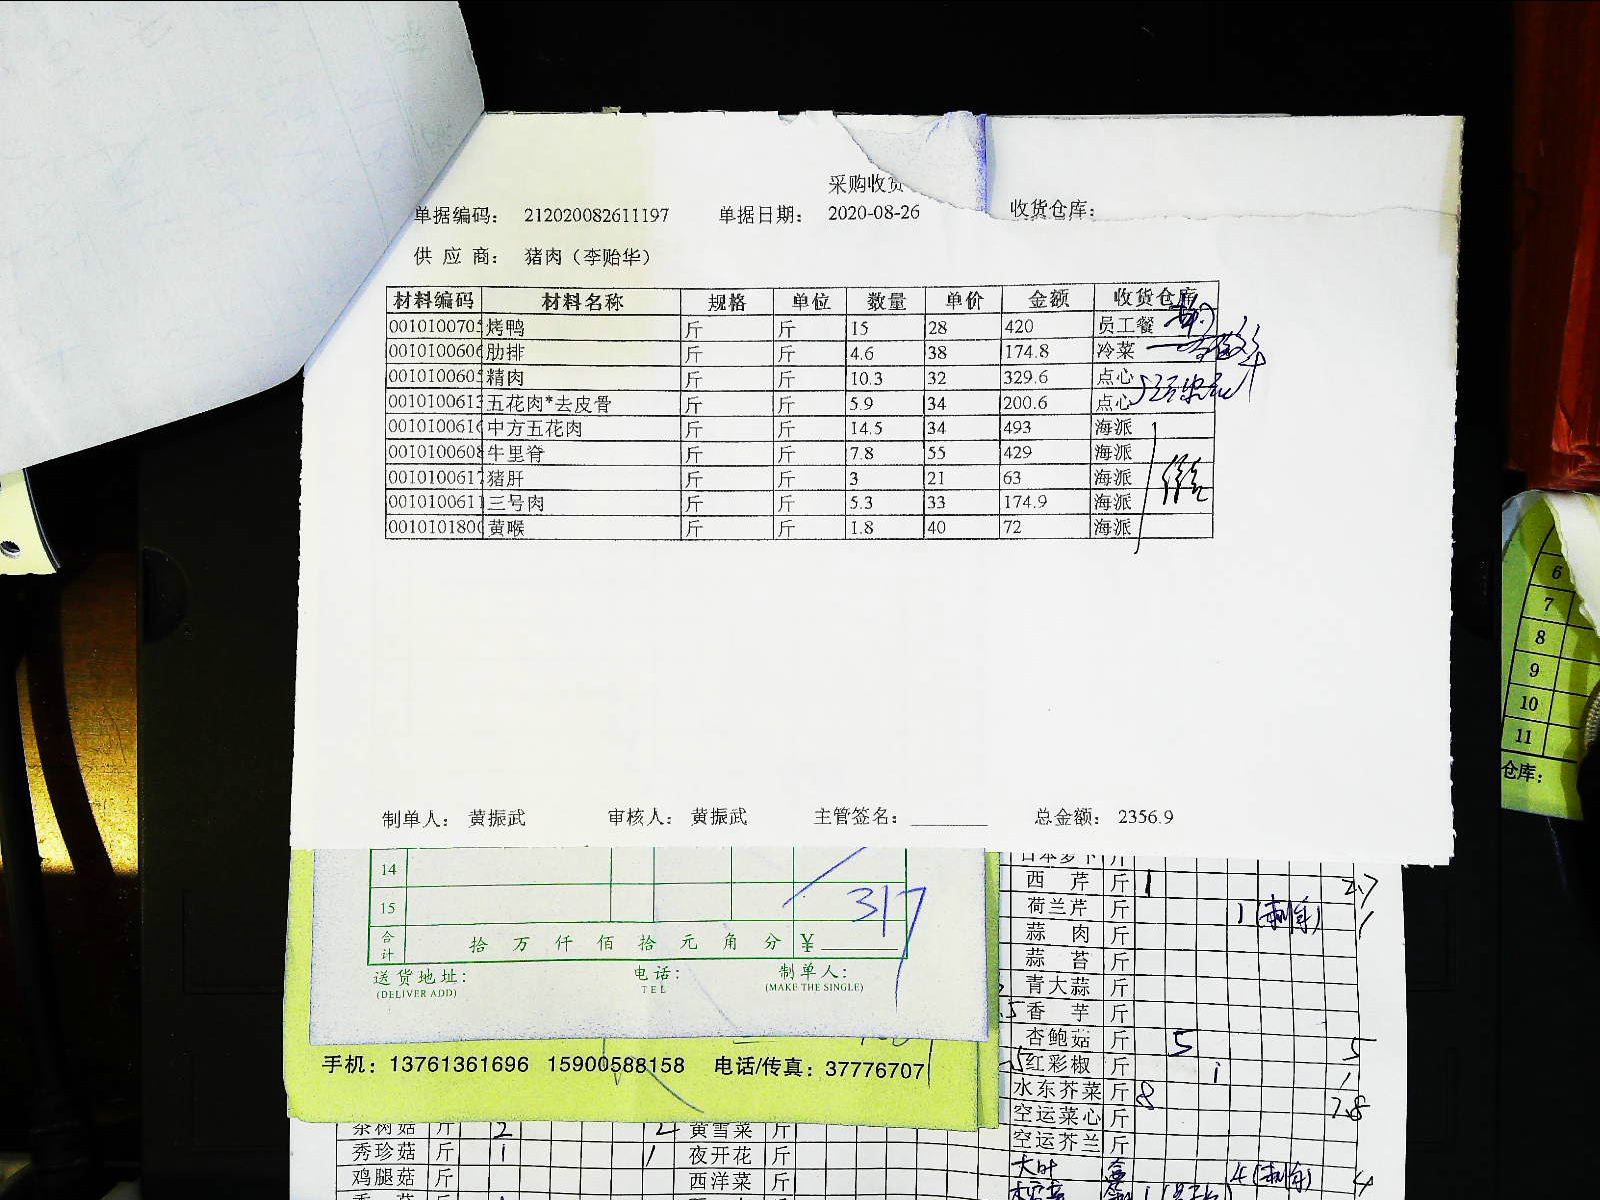 采购收货
单据编码： 212020082611197 单据日期： 2020-08-26 收货仓库：
供 应 商： 猪肉（李贻华）
材料编码 材料名称 规格 单位 数量 单价 金额 收货仓库
001010070 烤鸭 斤 斤 15 28 420 员工餐
001010060 肋排 斤 斤 4.6 38 174.8 冷菜
001010060 精肉 斤 斤 10.3 32 329.6 点心
001010061 五花肉*去皮骨 斤 斤 5.9 34 200.6 点心
001010061 中方五花肉 斤 斤 14.5 34 493 海派
001010060 牛里脊 斤 斤 7.8 55 429 海派
001010061 猪肝 斤 斤 3 21 63 海派
001010061 三号肉 斤 斤 5.3 33 174.9 海派
001010180 黄喉 斤 斤 1.8 40 72 海派
制单人： 黄振武 审核人： 黄振武 主管签名： 总金额： 2356.9
14
15 317
合计 拾 万 仟 佰 拾 元 角 分 ¥
送货地址： 电话： 制单人：
(DELIVER ADD) TEL (MAKE THE SINGLE)
手机：13761361696 15900588158 电话/传真：37776707
日本萝卜 斤
西 芹 斤 1 2.7
荷兰芹 斤 1 1
蒜 肉 斤
蒜 苔 斤
青大蒜 斤
香 芋 斤
杏鲍菇 斤 5 5
红彩椒 斤 1 1
水东芥菜 斤 8 7.8
空运菜心 斤
空运芥兰 斤
大叶 4 4
茶树菇 斤 2 2 黄雪菜 斤
秀珍菇 斤 1 1 夜开花 斤
鸡腿菇 斤 西洋菜 斤
6
7
8
9
10
11
仓库：